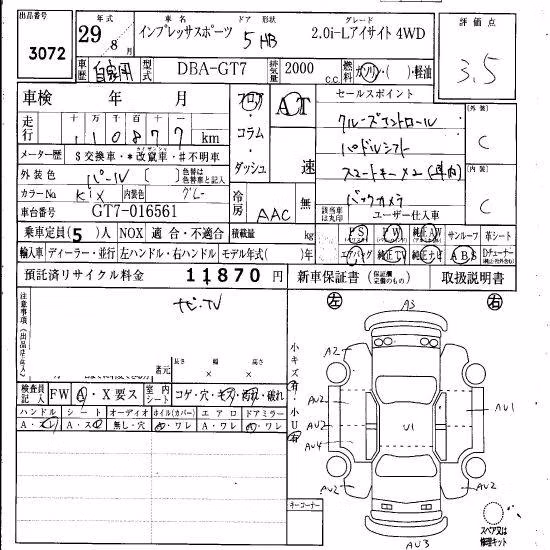 出品番号 年式 車名 ドア 形状 グレード 評価点
3072 29年8月 インプレッサスポーツ 5HB 2.0i-Lアイサイト 4WD 3.5
車歴 自家用 型式 DBA-GT7 排気量 2000 c.c. 燃料 ガソリン・( )・軽油
車検 年 月 フロア AT セールスポイント 外装 C
走行 十万千百十 110877 km コラム クルーズコントロール
メーター歴 $交換車・*改竄車・#不明車 ダッシュ 速 パドルシフト
外装色 パール ( ) 色替は色替車と記入 スマートキー×2 (車内) 内装 C
カラーNo K1X 内装色 グレー 冷房 AAC 無 バックカメラ
車台番号 GT7-016561 該当車は丸印 ユーザー仕入車
乗車定員(5)人 NOX 適合・不適合 積載量 kg PS PW 純正AW サンルーフ 革シート
輸入車 ディーラー・並行 左ハンドル・右ハンドル モデル年式( )年 エアバッグ 純正TV 純正ナビ ABS Dチューナー
預託済リサイクル料金 11870円 新車保証書 (保証書定義のもの) 取扱説明書
注意事項(出品店記入) ナビ・TV
左 右
A3
長さ 幅 高さ
荷元
小キズ有・小U有
検査員記入 FW A・X要ス 室内シート コゲ・穴・キズ・汚れ・破れ
ハンドル シート オーディオ ホイル(カバー) エアロ ドアミラー
A・スレ A・ス 無し・穴 A・ワレ A・ワレ A・ワレ
A2 A2
AU2 AU1
AU2 U1
AU4
AU2 AU2
AU3
キーコーナー
スペア又は修理キット